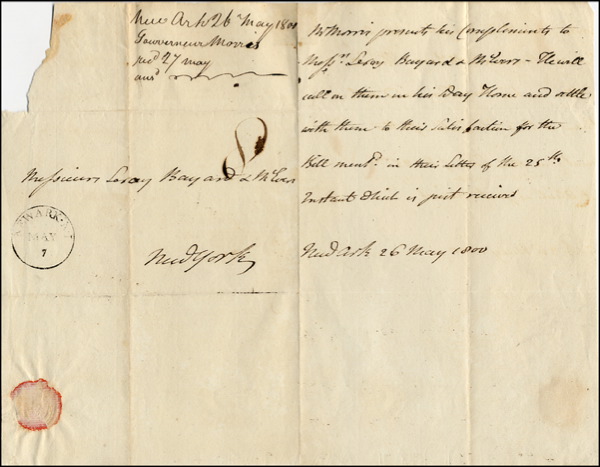 New Ark 26 May 1800
Gouverneur Morris
recd 27 May
ansd
Mr Morris presents his Compliments to
Messrs Leroy Bayard & McEvers – He will
call on them in his Way Home and settle
with them to their Satisfaction for the
Bill mentd in their Letter of the 25th
Instant which is just received
New Ark 26 May 1800
8
Messieurs Leroy Bayard & McEvers
New York
NEWARK N.J.
MAY
7